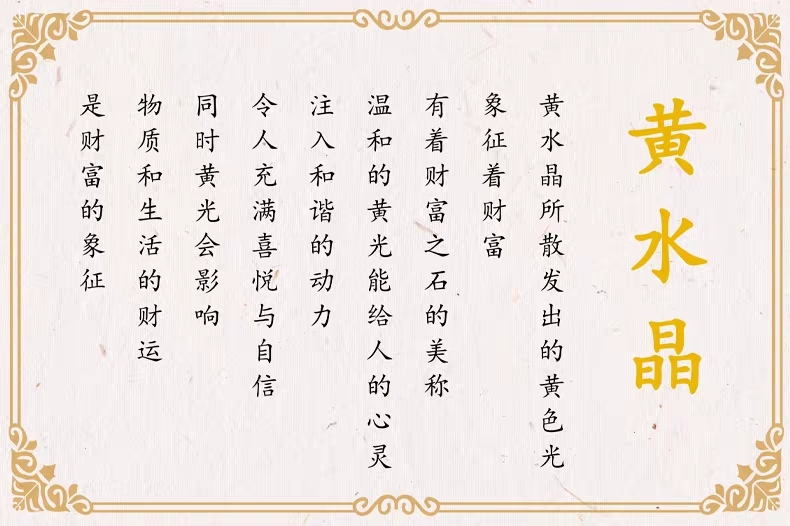 黄水晶
黄水晶所散发出的黄色光
象征着财富
有着财富之石的美称
温和的黄光能给人的心灵
注入和谐的动力
令人充满喜悦与自信
同时黄光会影响
物质和生活的财运
是财富的象征